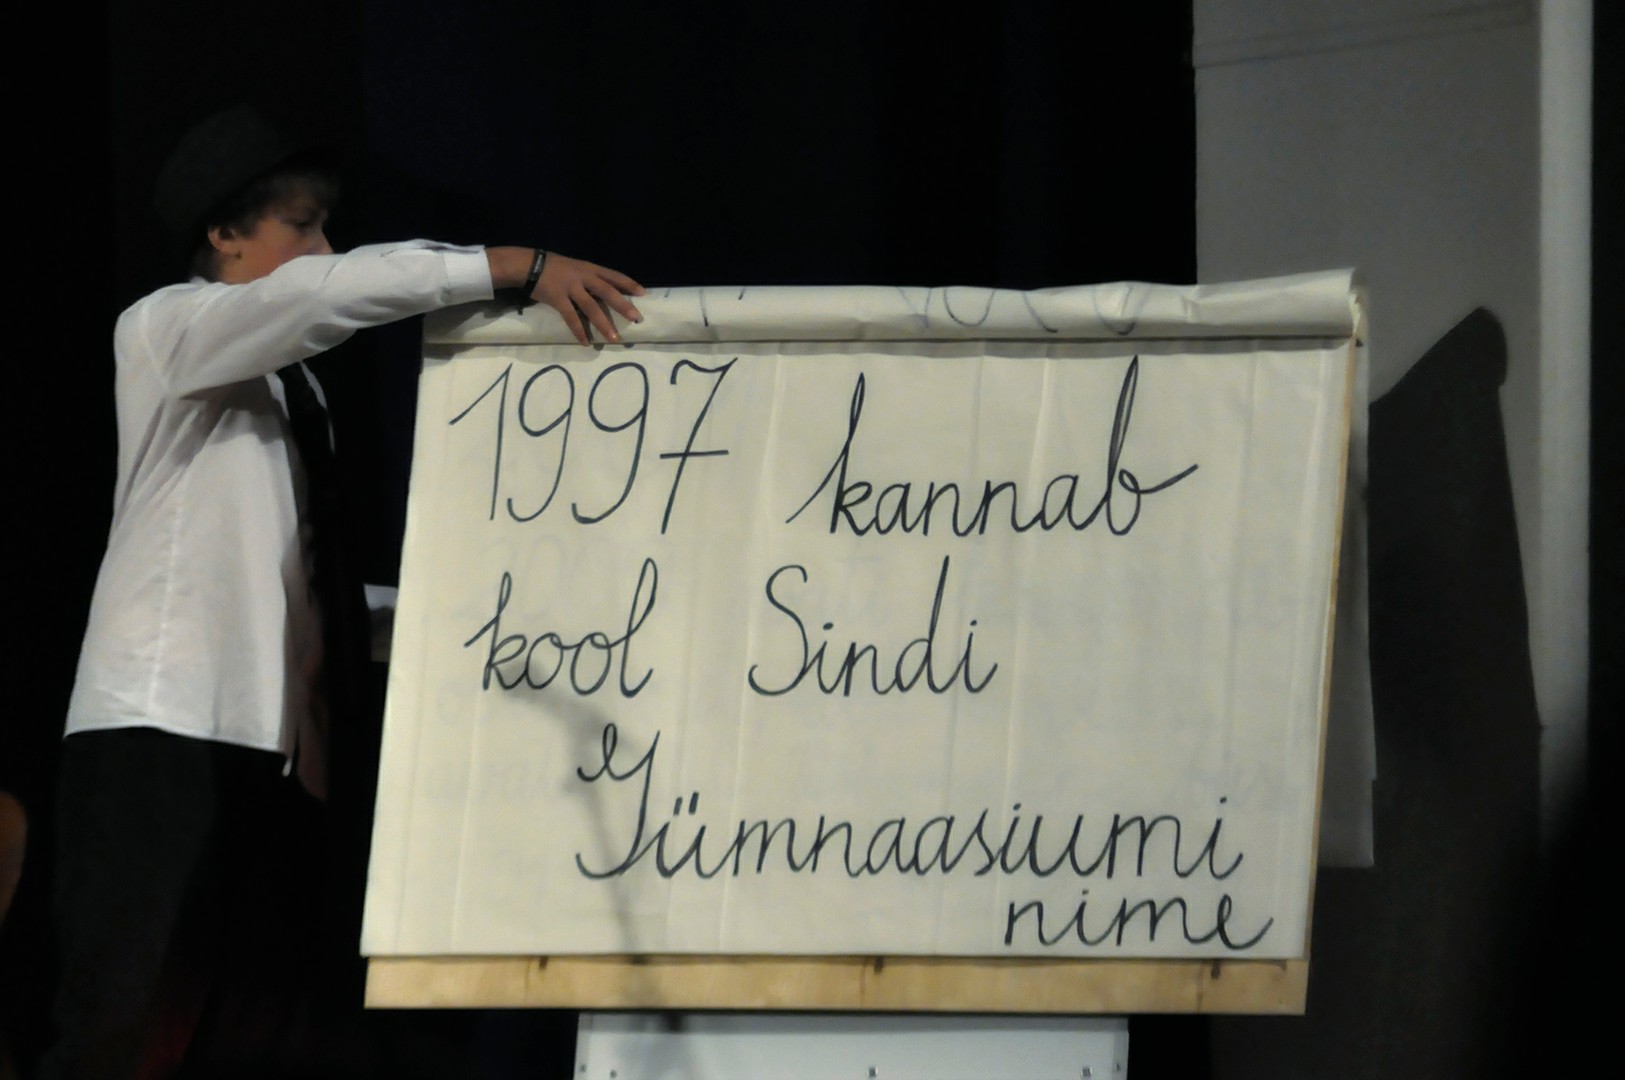 1997 kannab
kool Sindi
Gümnaasiumi
nime